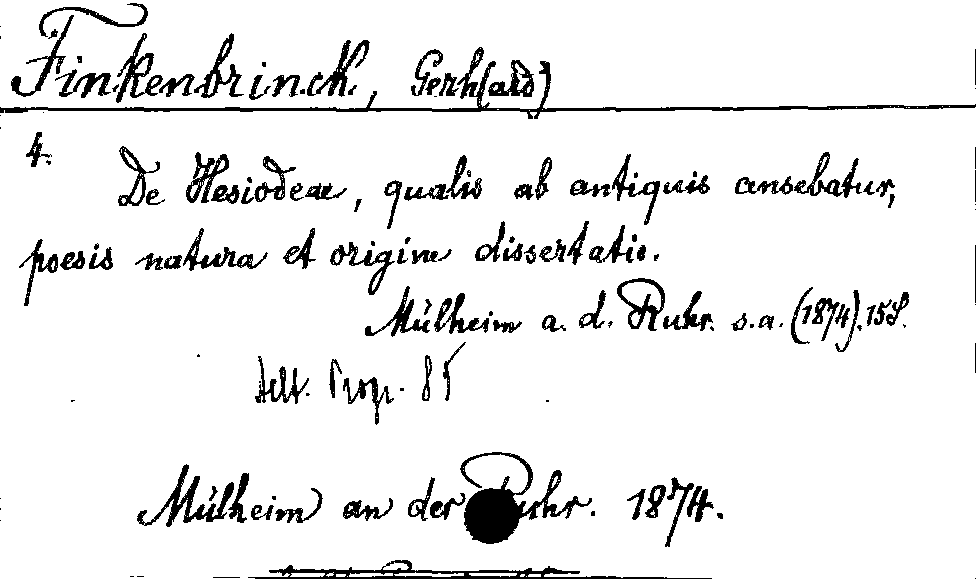 Finkenbrinck, Gerh(ard)
4.
De Hesiodeae, qualis ab antiquis censebatur,
poesis natura et origine dissertatio.
Mülheim a. d. Ruhr. s.a. (1874). 15 S.
Prop. 85
Mülheim an der Ruhr. 1874.